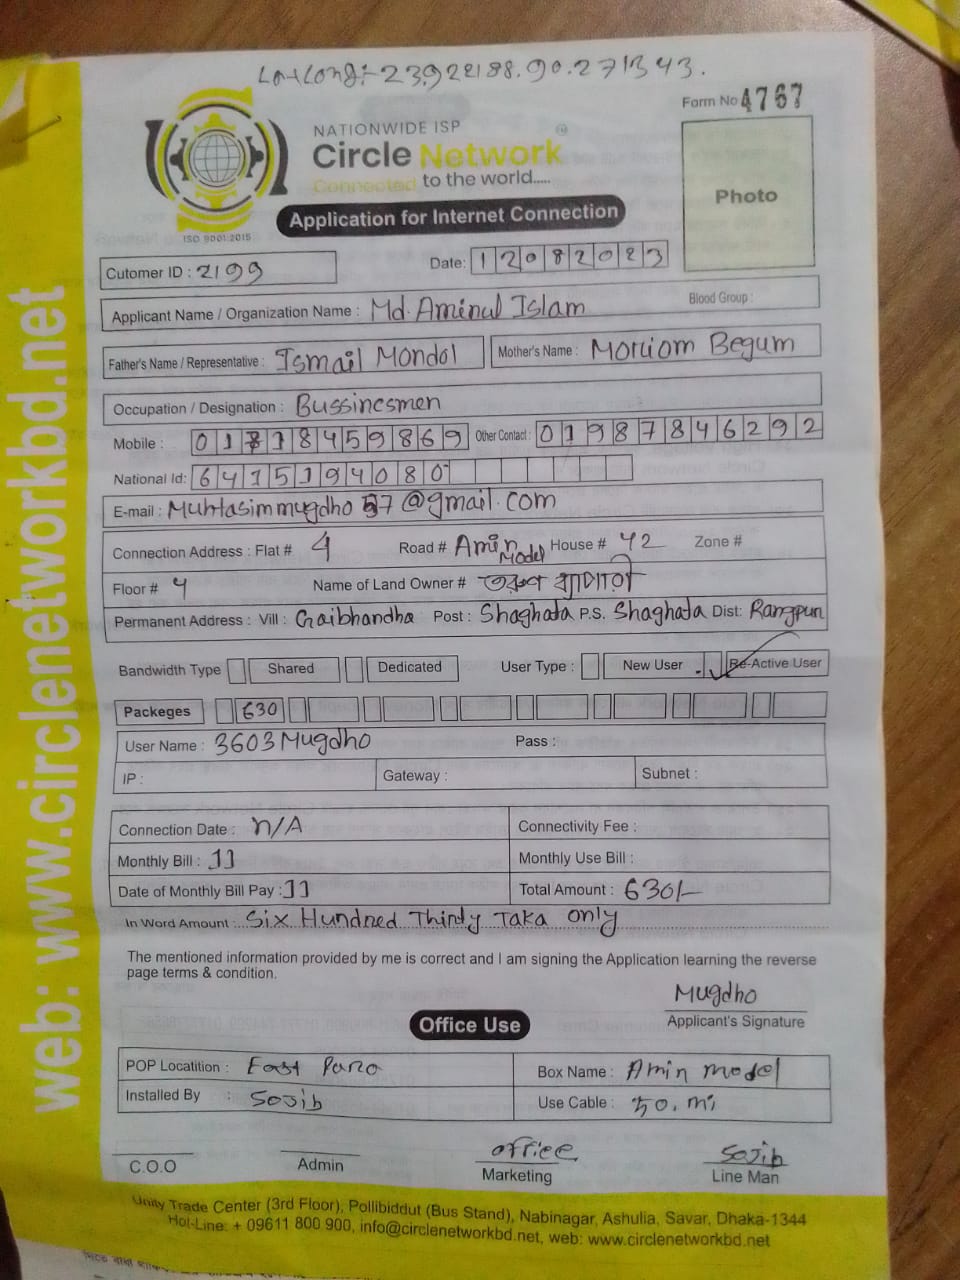 Form No 4767
NATIONWIDE ISP
Circle Network
Connected to the world.....
Application for Internet Connection
Photo
ISO 9001:2015
Cutomer ID : 2199
Date: 12082023
Applicant Name / Organization Name : Md. Aminul Islam Blood Group :
Father's Name / Representative : Ismail Mondol Mother's Name : Moriom Begum
Occupation / Designation : Bussinesmen
Mobile : Other Contact : 01987846292
National Id: 6415194080
E-mail :
Connection Address : Flat # 4 Road # Amin Model House # 42 Zone #
Floor # 4 Name of Land Owner #
Permanent Address : Vill : Gaibhandha Post : Shaghata P.S. Shaghata Dist: Rangpur
Bandwidth Type Shared Dedicated User Type : New User Re-Active User
Packeges 630
User Name : 3603Mugdho Pass :
IP : Gateway : Subnet :
Connection Date : N/A Connectivity Fee :
Monthly Bill : 11 Monthly Use Bill :
Date of Monthly Bill Pay : 11 Total Amount : 630/-
In Word Amount : Six Hundred Thirty Taka only
The mentioned information provided by me is correct and I am signing the Application learning the reverse
page terms & condition.
Mugdho
Applicant's Signature
Office Use
POP Locatition : East Para Box Name : Amin model
Installed By : Sojib Use Cable :
office Sojib
C.O.O Admin Marketing Line Man
Unity Trade Center (3rd Floor), Pollibiddut (Bus Stand), Nabinagar, Ashulia, Savar, Dhaka-1344
Hot-Line: + 09611 800 900, info@circlenetworkbd.net, web: www.circlenetworkbd.net
web: www.circlenetworkbd.net